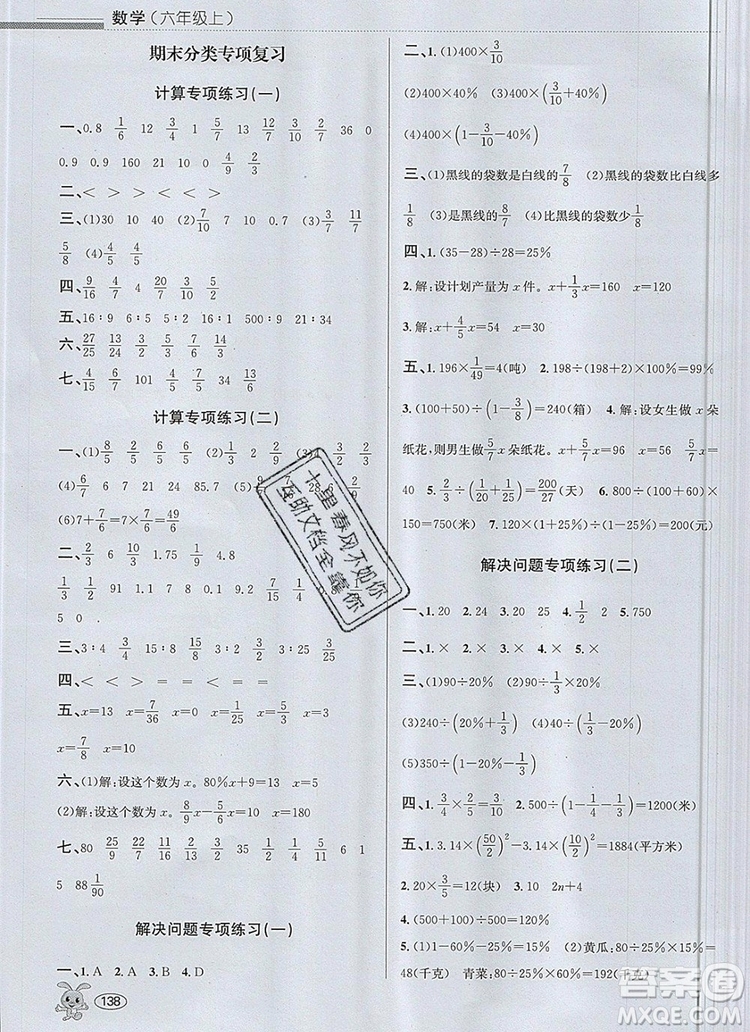 数学(六年级上)
期末分类专项复习
计算专项练习(一)
一、0.8 1/6 12 3/4 1 13 12/7 3/10 1/2 36 0
0.9 0.9 160 21 10 0 4/9 2/3
二、< > > >
三、(1)30 20 (2)7/10 7 10 0.7 (3)3/4 11/7
5/8 (4)4/5 4/5
四、9/16 4/7 4 20/7 3/10 4/3
五、16∶9 6∶5 5∶2 16∶1 500∶9 21∶34
六、27/25 13/24 2/3 6/11 1/3
七、4/7 6/7 101 4/5 15/4
计算专项练习(二)
一、(1)8/5 5/6 6/5 (2)1/3 2 2/9 (3)2 3/2 2/3
(4)6/7 6 24 21 84 85.7
(6)7÷6/7=7×7/6=49/6
二、2/3 0.06 3/2 1.9 4.8
1/4 1/15 1 91 1.1 7 8 0.1
5 0.
三、3∶4 3/4 15∶4 15/4 3∶25 3/25
四、= < > = < >
五、x=0 x=7/36 x=0 x=9/25 x=3
x=7/8 x=10
六、(1)解:设这个数为x。80%x+9=13 x=5
(2)解:设这个数为x。8/9x-5/6x=10 x=180
七、80 25/9 29/22 1/2 2/15 11/15 6 1
5 88 9/10
解决问题专项练习(一)
一、1.A 2.A 3.B 4.D
138
二、1.(1)400×3/10
(2)400×40% (3)400×(3/10+40%)
(4)400×(1-3/10-40%)
三、(1)黑线的袋数是白线的7/8 (2)黑线的袋数比白线多
1/8 (3)是黑线的袋数的 (4)比黑线的袋数少1/8
四、1.(35-28)÷28=25%
2.解:设计划产量为x件。x+1/3x=160 x=120
3.解:x+4/5x=54 x=30
五、1.196×1/49=4(吨) 2.198÷(198+2)×100%=99%
3.(100+50)÷(1-3/8)=240(箱) 4.解:设女生做x朵
纸花,则男生做5/7x朵纸花。x+5/7x=96 x=56 5/7x=
40 5.
150=750(米) 7.100×(1+25%)÷(1-25%)
解决问题专项练习(二)
一、1.20 2.24 3.20 4.1/2 5.750
二、1.× 2.× 3.× 4.×
三、(1)90÷20% (2)90÷1/3
(3)240÷(20%+1/3) (4)30÷(1/3-20%)
(5)350÷(1-20%-1/3)
四、1.3/4×2/5=3/10 2.50÷(1-1/4-)=1200(米)
五、1.3.14×(50/2)²-3.14×(10/2)²=1884(平方米)
2.20×3/5=12(块) 3.2n+2
4.(500+300)÷500=160%
5.(1)1-60%-25%=15% (2)黄瓜:80÷25%×15%=
48(千克) 青菜:80÷25%×60%=192(千克)
十里春风不如你
互助文档全靠你
答案圈
MXQE.COM